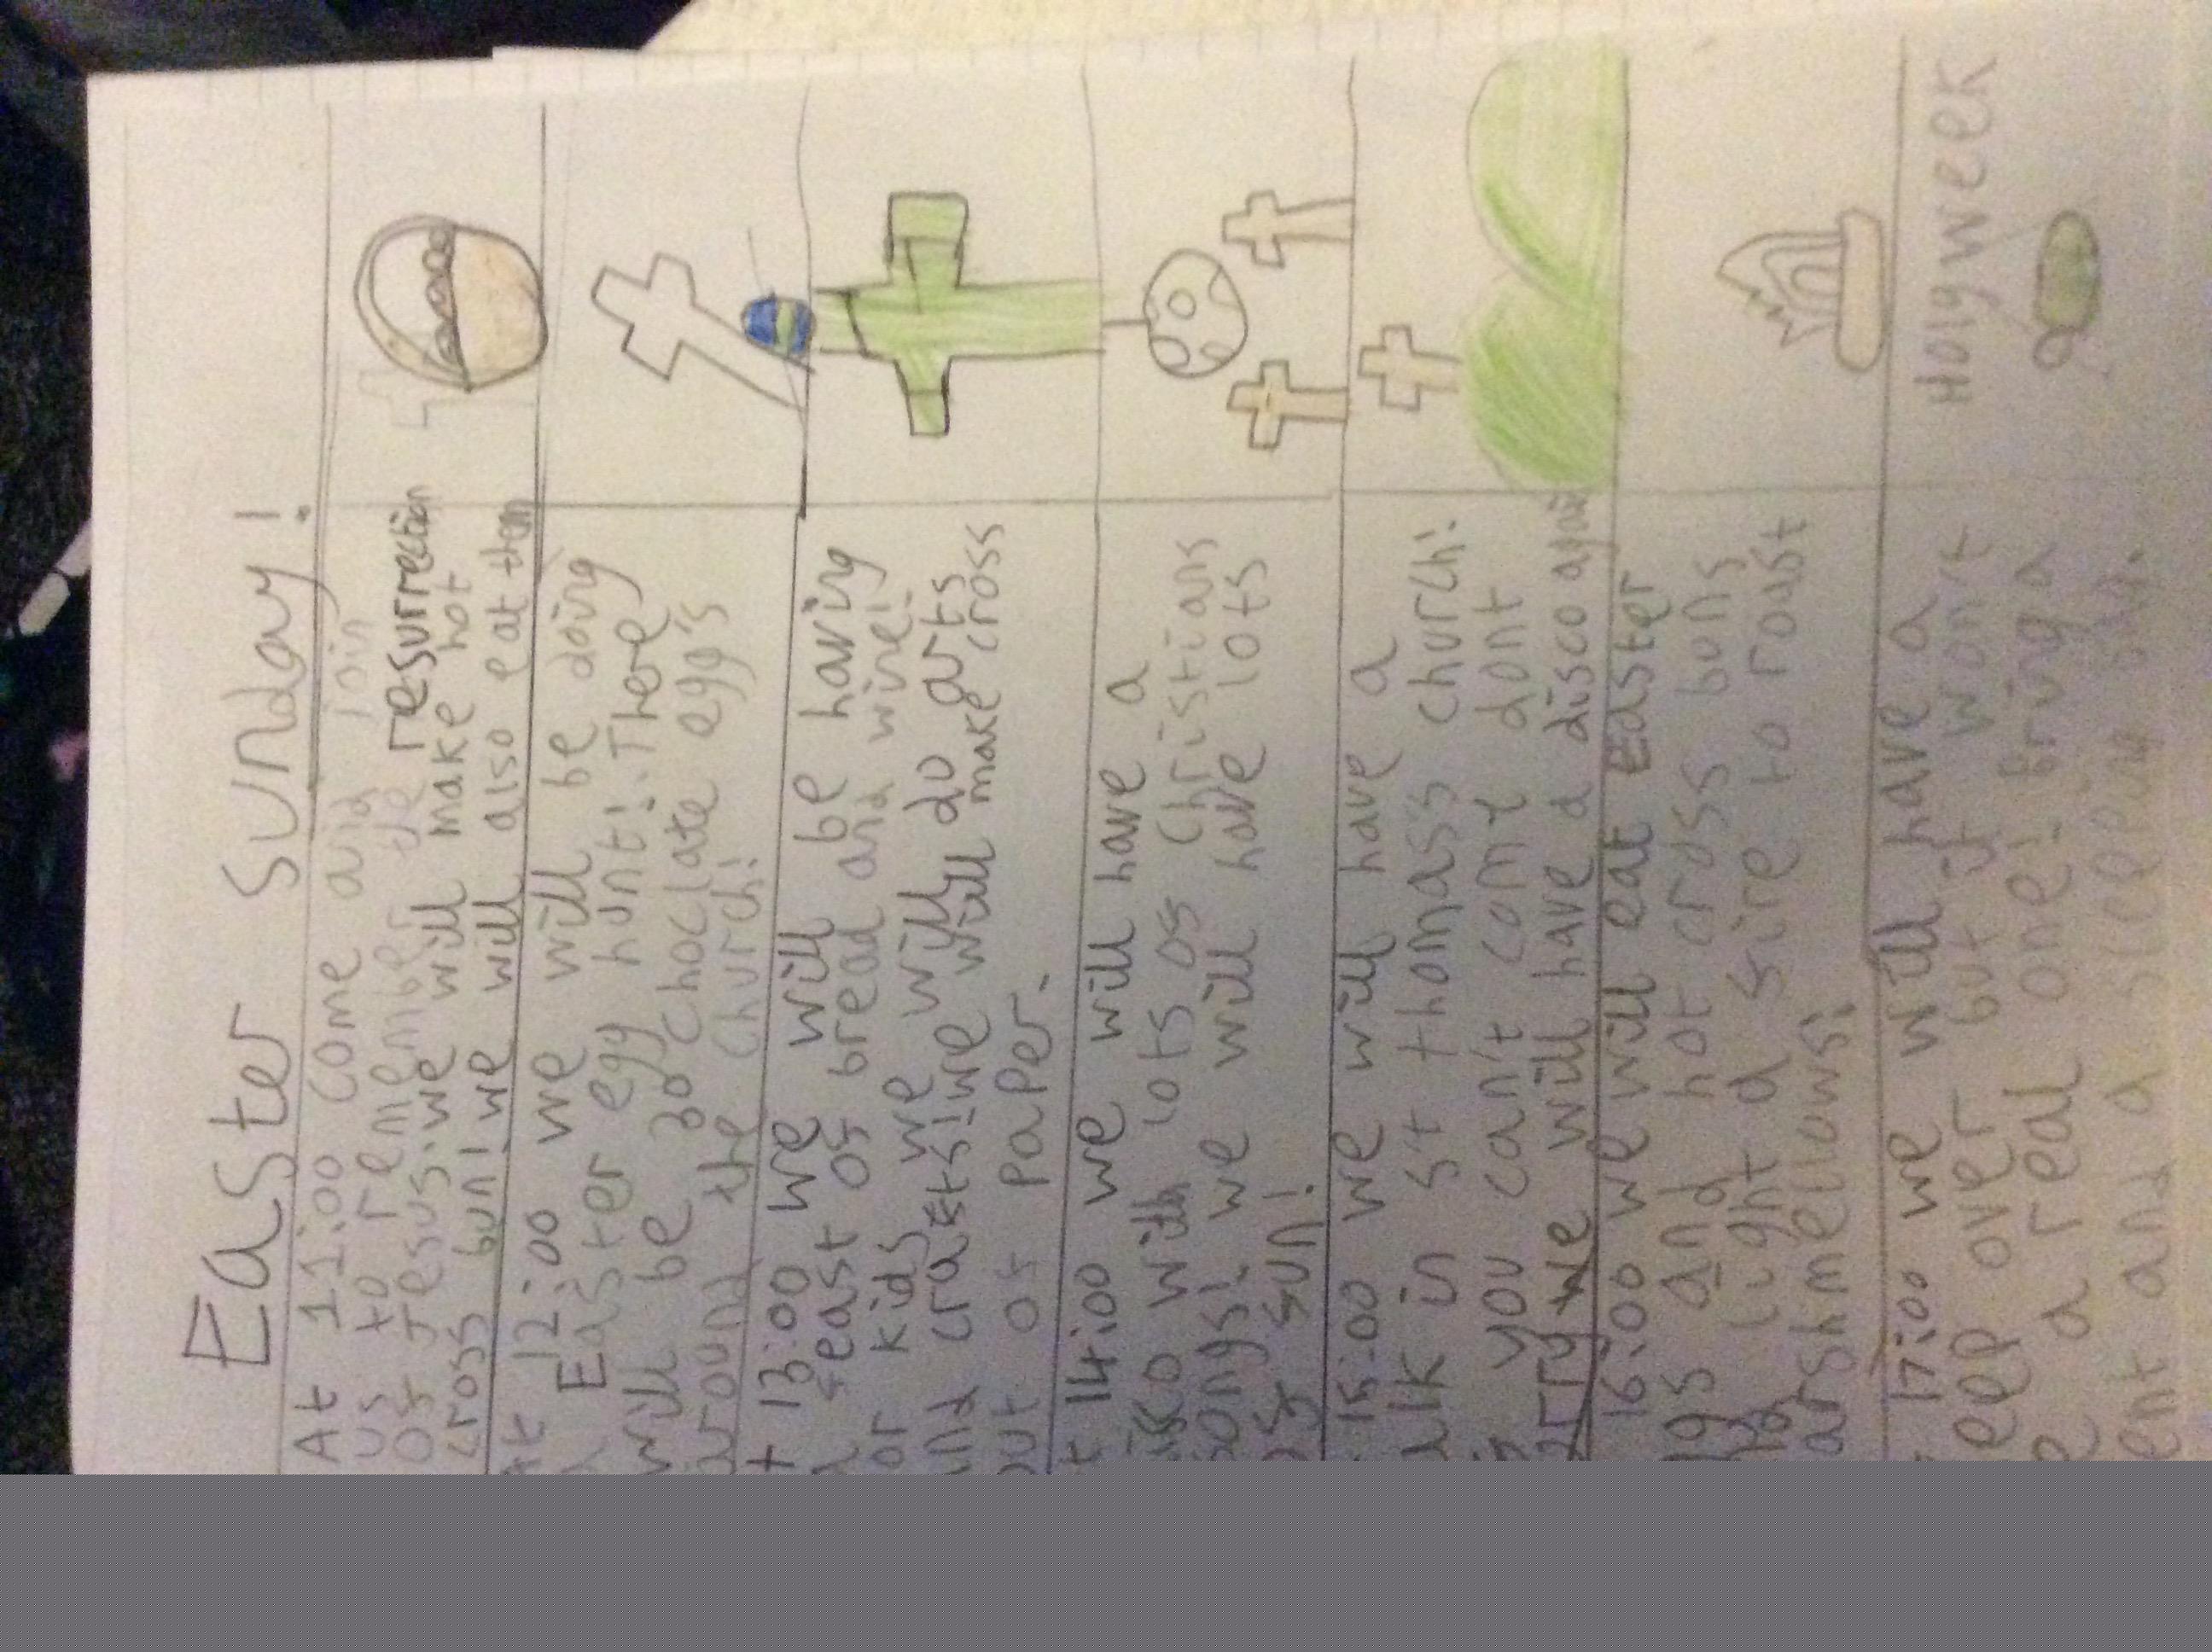 Easter Sunday!
At 11:00 come and join
us to remember the resurrection
of Jesus. we will make hot
cross bun! we will also eat them
At 12:00 we will be doing
Easter egg hunt! There
will be 30 choclate egg's
around the church!
13:00 we will be having
feast of bread and wine!
or kids we will do arts
and crafts! we will make cross
out of paper.
14:00 we will have a
disco with lots of Christians
songs! we will have lots
of fun!
15:00 we will have a
in st thomas's church!
you can't come dont
we will have a disco again
16:00 we will eat Easter
and hot cross buns
light a fire to roast
marshmellows!
17:00 we will have a
over but it won't
a real one! bring a
and a sleeping
Holy week